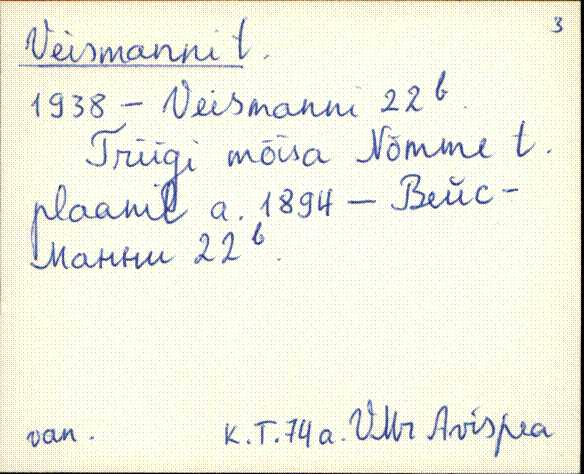 3
Veismanni t.
1938 – Veismanni 22b.
Triigi mõisa Nõmme t.
plaanil a. 1894 – Вейс-
манни 22b.
van. K.T.74a. VMr Avispea